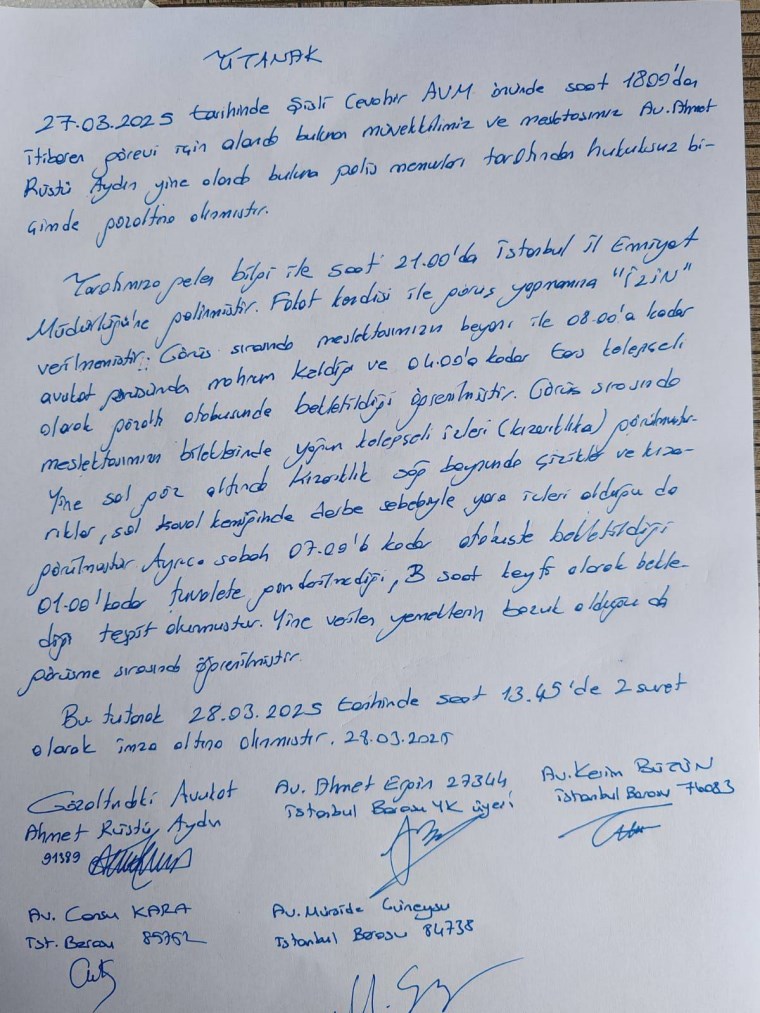 TUTANAK
27.03.2025 tarihinde Şişli Cevahir AVM önünde saat 18:00'dan
itibaren görevi için alanda bulunan müvekkilimiz ve meslektaşımız Av. Ahmet
Rüştü Aydın yine alanda bulunan polis memurları tarafından hukuksuz bi-
çimde gözaltına alınmıştır.
Tarafımıza gelen bilgi ile saat 21.00'da İstanbul İl Emniyet
Müdürlüğü'ne gelinmiştir. Fakat kendisi ile görüş yapmamıza "İZİN"
verilmemiştir. Görüş sırasında meslektaşımızın beyanı ile 08.00'a kadar
avukat görüşünden mahrum kaldığı ve 04.00'a kadar ters kelepçeli
olarak gözaltı otobüsünde bekletildiği öğrenilmiştir. Görüş sırasında
meslektaşımızın bileklerinde yoğun kelepçeli izleri (kızarıklıklar) görülmüştür.
Yine sol göz altında kızarıklık sağ boynunda çizikler ve kıza-
rıklar, sol kaval kemiğinde darbe sebebiyle yara izleri olduğu da
görülmüştür. Ayrıca sabah 07.00'a kadar otobüste bekletildiği
01.00'kadar tuvalete gönderilmediği, 3 saat keyfi olarak bekle-
diği tespit olunmuştur. Yine verilen yemeklerin bozuk olduğu da
görüşme sırasında öğrenilmiştir.
Bu tutanak 28.03.2025 tarihinde saat 13.45'de 2 suret
olarak imza altına alınmıştır. 28.03.2025
Gözaltındaki Avukat
Ahmet Rüştü Aydın
91389
Av. Ahmet Ergin 27344
İstanbul Barosu YK üyesi
Av. Kerim BÜTÜN
İstanbul Barosu 76083
Av. Cansu KARA
İst. Barosu 85752
Av. Mürşide Güneysu
İstanbul Barosu 84738